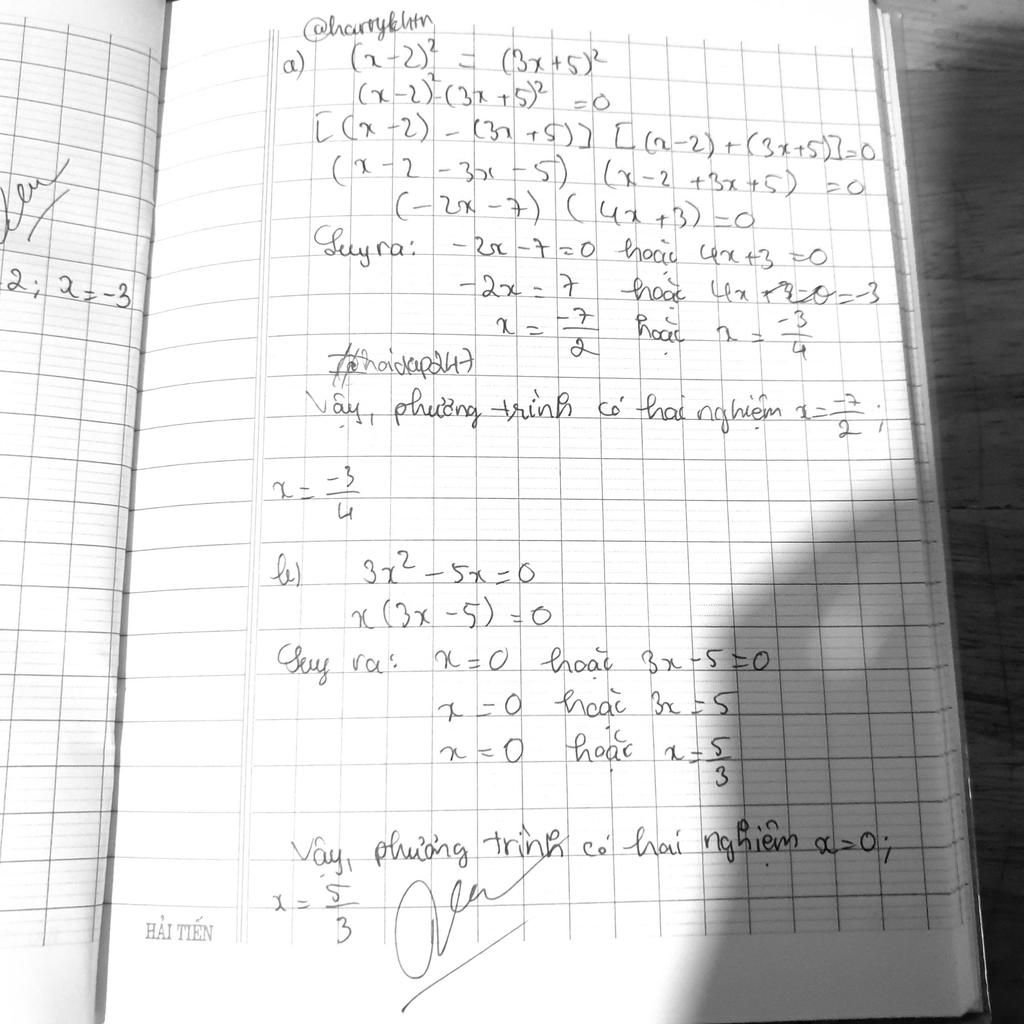 2; x = -3
@harrykhtn
a) (x-2)² = (3x+5)²
(x-2)²-(3x+5)² = 0
[(x-2) - (3x+5)] [(x-2)+(3x+5)]=0
(x-2-3x-5) (x-2+3x+5) = 0
(-2x-7) (4x+3) = 0
Suy ra: -2x-7=0 hoặc 4x+3=0
-2x = 7 hoặc 4x = -3
x = -7/2 hoặc x = -3/4
#hoidap247
Vậy, phương trình có hai nghiệm x = -7/2 ;
x = -3/4
b) 3x² - 5x = 0
x(3x-5) = 0
Suy ra: x=0 hoặc 3x-5=0
x = 0 hoặc 3x = 5
x = 0 hoặc x = 5/3
Vậy, phương trình có hai nghiệm x=0;
x = 5/3
HẢI TIẾN